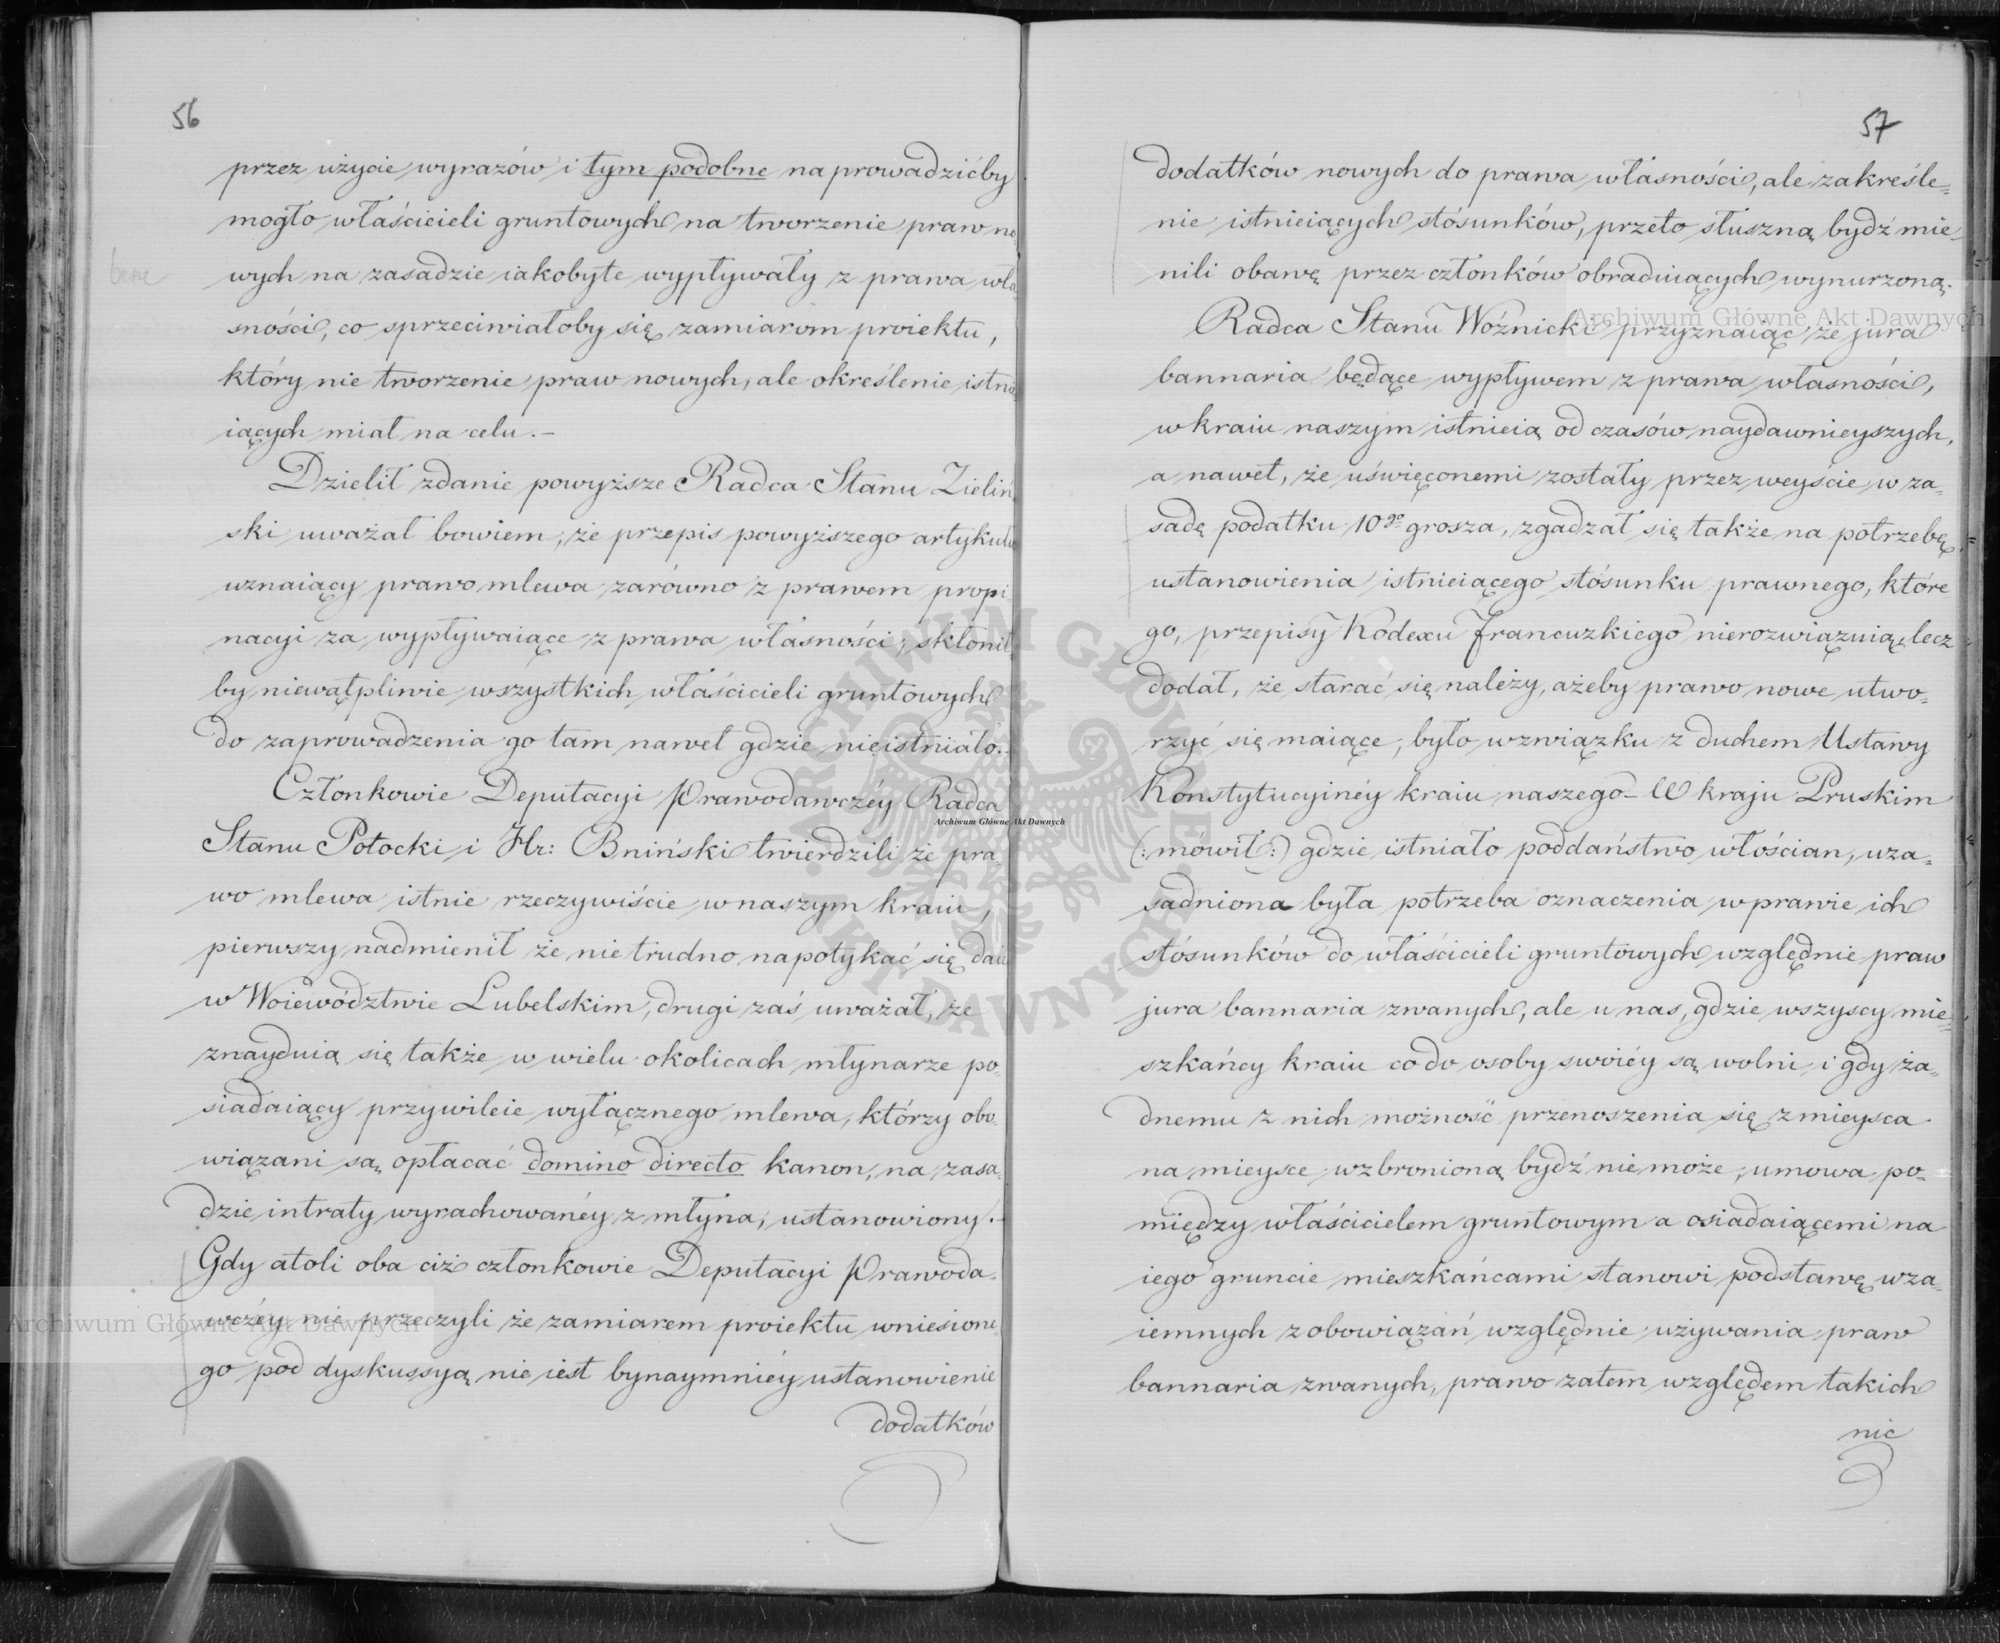 56
przez użycie wyrazów i tym podobne naprowadzićby
mogło właścicieli gruntowych na tworzenie praw no
wych na zasadzie iakobyte wypływały z prawa wła
sności, co sprzeciwiałoby się zamiarom proiektu,
który nie tworzenie praw nowych, ale określenie istnie
iących miał na celu.–
Dzielił zdanie powyższe Radca Stanu Zieliń
ski uważał bowiem, że przepis powyższego artykułu
uznaiący prawo mlewa zarówno z prawem propi
nacyi za wypływaiące z prawa własności, skłonił
by niewątpliwie wszystkich właścicieli gruntowych
do zaprowadzenia go tam nawet gdzie nieistniało.–
Członkowie Deputacyi Prawodawczéy Radca
Stanu Potocki i Hr: Bniński twierdzili że pra
wo mlewa istnie rzeczywiście w naszym kraiu,
pierwszy nadmienił że nie trudno napotykać się daie
w Woiewództwie Lubelskim, drugi zaś uważał, że
znayduią się także w wielu okolicach młynarze po
siadaiący przywileie wyłącznego mlewa, którzy obo
wiązani są opłacać domino directo kanon, na zasa
dzie intraty wyrachowanéy z młyna, ustanowiony.–
Gdy atoli oba ciż członkowie Deputacyi Prawoda
wczéy nie przeczyli że zamiarem proiektu wniesione
go pod dyskussyą nie iest bynaymniéy ustanowienie
dodatków
57
dodatków nowych do prawa własności, ale zakreśle=
nie istnieiących stósunków, przeto słuszną bydź mie=
nili obawę przez członków obraduiących wynurzoną.
Radca Stanu Woźnicki przyznaiąc że jura
bannaria będące wypływem z prawa własności,
w kraiu naszym istnieią od czasów naydawnieyszych,
a nawet, że uświęconemi zostały przez weyście w za=
sadę podatku 10go grosza, zgadzał się także na potrzebę
ustanowienia istnieiącego stósunku prawnego, które
go, przepisy Kodexu Francuzkiego nierozwiązuią, lecz
dodał, że starać się należy, ażeby prawo nowe utwo=
rzyć się maiące, było w związku z duchem Ustawy
Konstytucyinéy kraiu naszego– W kraju Pruskim
(:mówił:) gdzie istniało poddaństwo włościan, uza=
sadniona była potrzeba oznaczenia w prawie ich
stósunków do właścicieli gruntowych względnie praw
jura bannaria zwanych, ale u nas, gdzie wszyscy mie=
szkańcy kraiu co do osoby swoiéy są wolni i gdy ża=
dnemu z nich możność przenoszenia się z mieysca
na mieysce wzbronioną bydź nie może, umowa po=
między właścicielem gruntowym a osiadaiącemi na
iego gruncie mieszkańcami stanowi podstawę wza=
iemnych zobowiązań względnie używania praw
bannaria zwanych, prawo zatem względem takich
nic
Archiwum Główne Akt Dawnych
Archiwum Główne Akt Dawnych
Archiwum Główne Akt Dawnych
ARCHIWUM GŁÓWNE AKT DAWNYCH